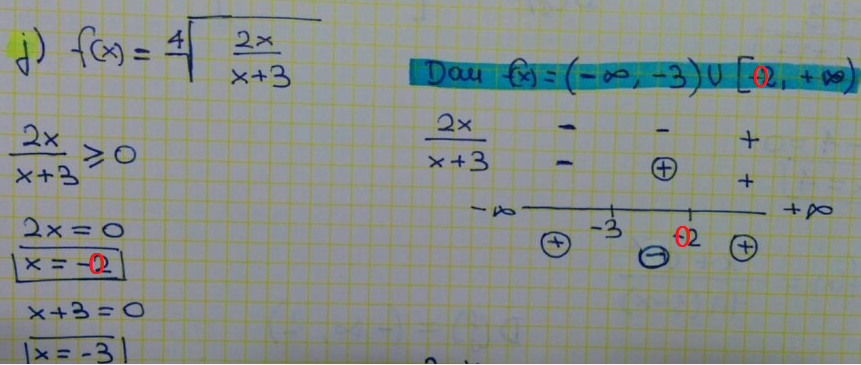 j) f(x) = ∜(2x/(x+3))
2x/(x+3) ≥ 0
2x = 0
x = -0
x+3 = 0
x = -3
Dom f(x) = (-∞, -3) ∪ [0, +∞)
2x - - +
x+3 - + +
-∞ -3 0 +∞
+ - +